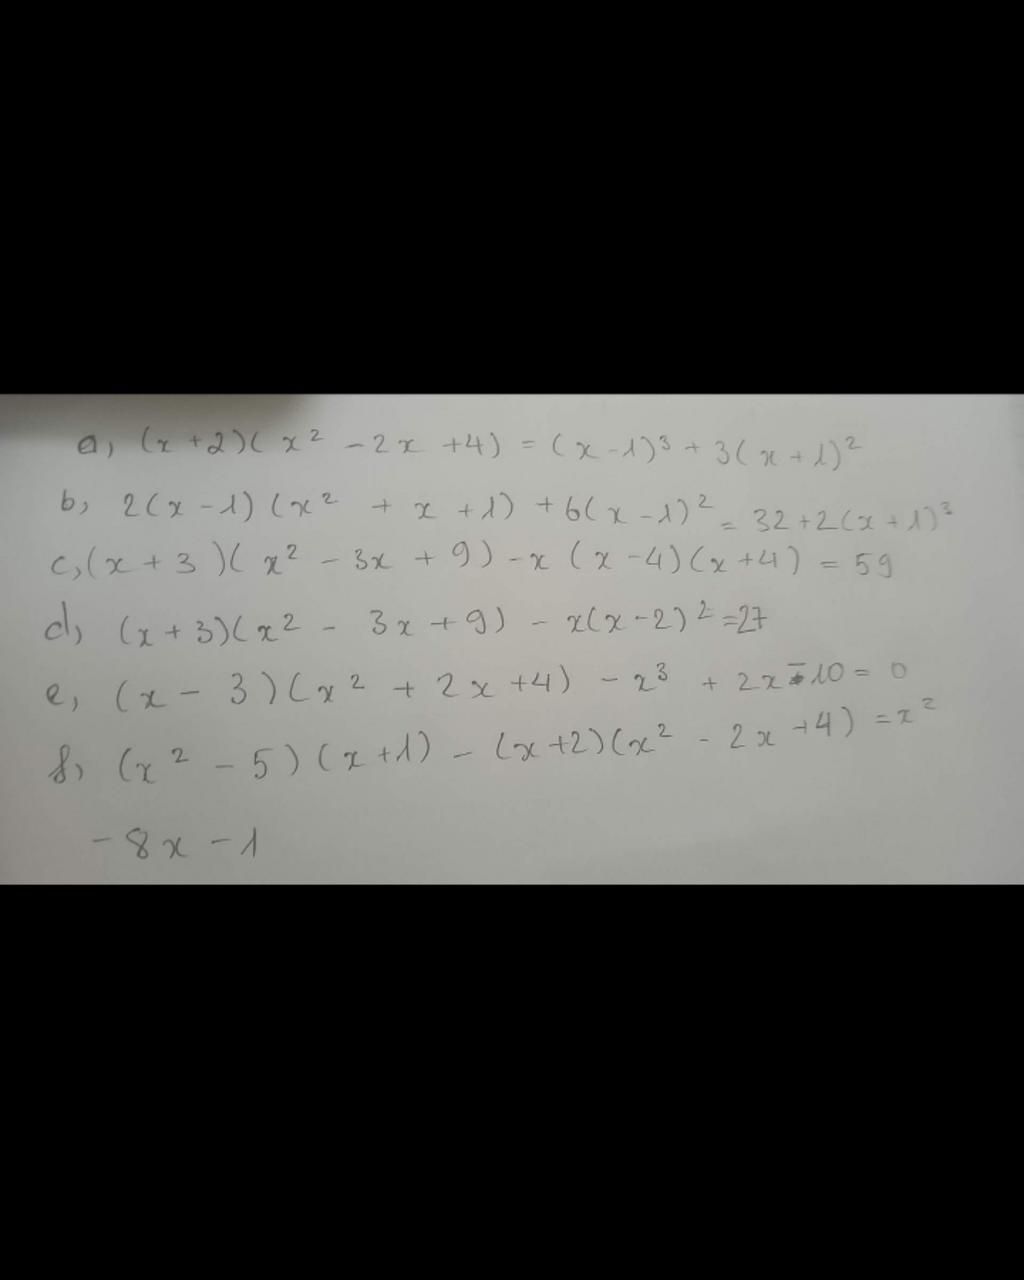 a, (x+2)(x² - 2x +4) = (x-1)³ + 3(x+1)²
b, 2(x-1)(x² + x +1) +6(x-1)² = 32+2(x+1)³
c, (x+3)(x² - 3x + 9) - x(x-4)(x+4) = 59
d, (x+3)(x² - 3x+9) - x(x-2)² =27
e, (x- 3)(x² + 2x+4) - x³ + 2x-10= 0
f, (x² - 5)(x+1) - (x+2)(x² - 2x +4) =x²
-8x -1